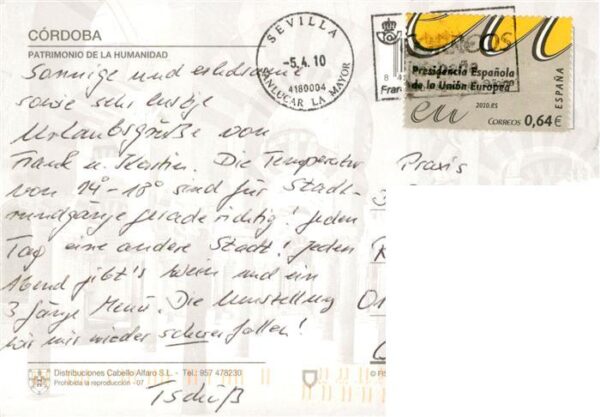 CÓRDOBA
PATRIMONIO DE LA HUMANIDAD
SEVILLA
-5.4.10
4180004
SANLUCAR LA MAYOR
CORREOS
España
Presidencia Española
de la Unión Europea
eu
2010.ES
CORREOS 0,64€
ESPAÑA
Sonnige und
sowie sehr lustige
Urlaubsgrüße von
Frank u. Kerstin. Die Temperatur
von 14°-18° sind für Stadt-
rundgänge gerade richtig! Jeden
Tag eine andere Stadt! Jeden
Abend gibt's Wein und ein
3 Gänge Menü. Die Umstellung
wir mir wieder schwer fallen!
Tschüß
Praxis
Distribuciones Cabello Alfaro S.L. - Tel.: 957 478230
Prohibida la reproducción - 07